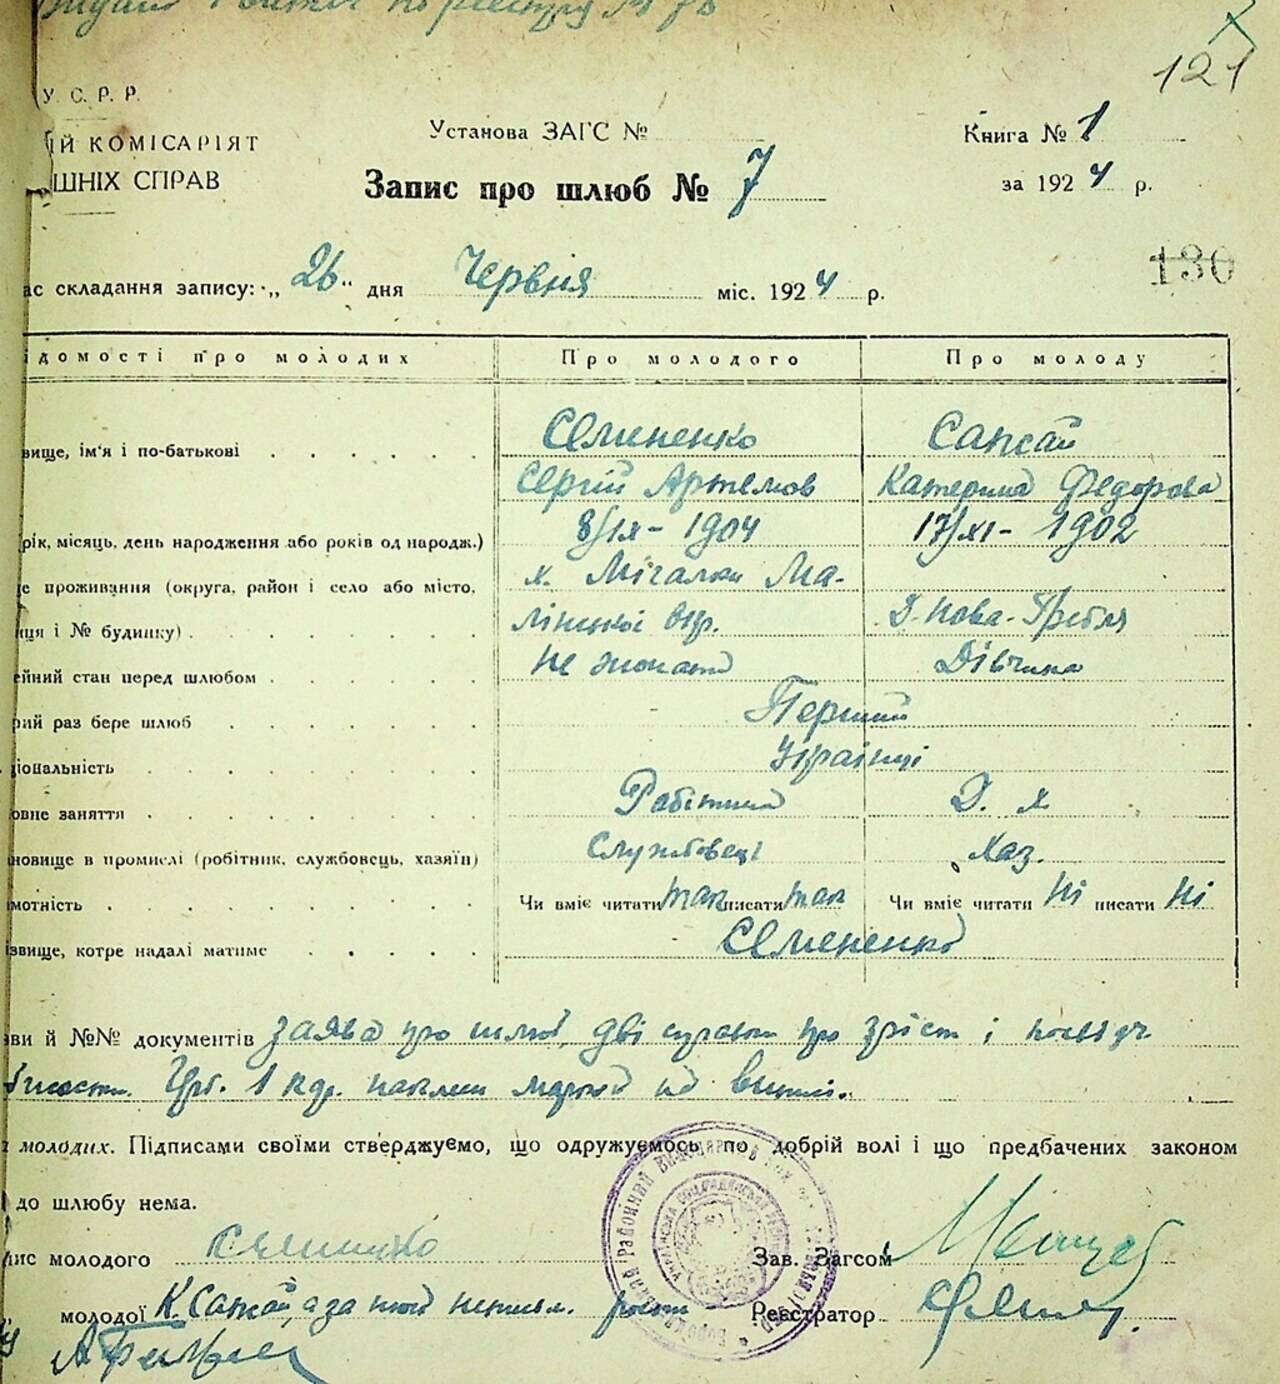 121
У. С. Р. Р.
ІЙ КОМІСАРІЯТ
ШНІХ СПРАВ
Установа ЗАГС №
Книга № 1
Запис про шлюб № 7
за 1924 р.
130
ас складання запису: „26“ дня Червня міс. 1924 р.
ідомості про молодих Про молодого Про молоду
вище, ім'я і по-батькові Семененко Сапсай
Сергій Артемов Катерина Федорова
рік, місяць, день народження або років од народж.) 8/IX - 1904 17/XI - 1902
е проживання (округа, район і село або місто, х. Мігалки Ма-
иця і № будинку) лінської окр. Д. Нова-Гребля
ейний стан перед шлюбом Не жонатй Дівчина
рий раз бере шлюб Перший
іональність Українці
овне заняття Робітник Д. х
новище в промислі (робітник, службовець, хазяїн) Службовець Хаз.
мотність Чи вміє читати так писати так Чи вміє читати Ні писати Ні
звище, котре надалі матиме Семененко
ви й №№ документів заява про шлюб, дві справки про зріст і
1 маркой
молодих. Підписами своїми стверджуємо, що одружуємось по добрій волі і що предбачених законом
до шлюбу нема.
ис молодого Зав. Загсом
молодої К. Сапсай, а за Реєстратор